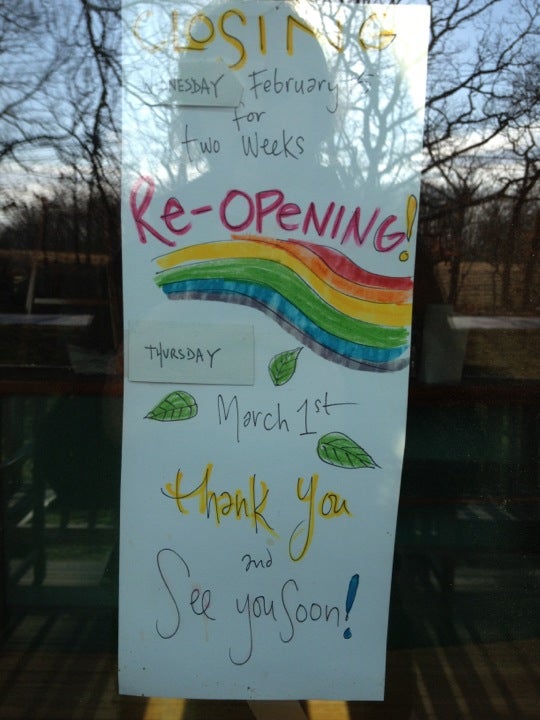 CLOSING
WEDNESDAY February 15
for
two Weeks
Re-OPeNING!
THURSDAY
March 1st
thank you
and
See you Soon!